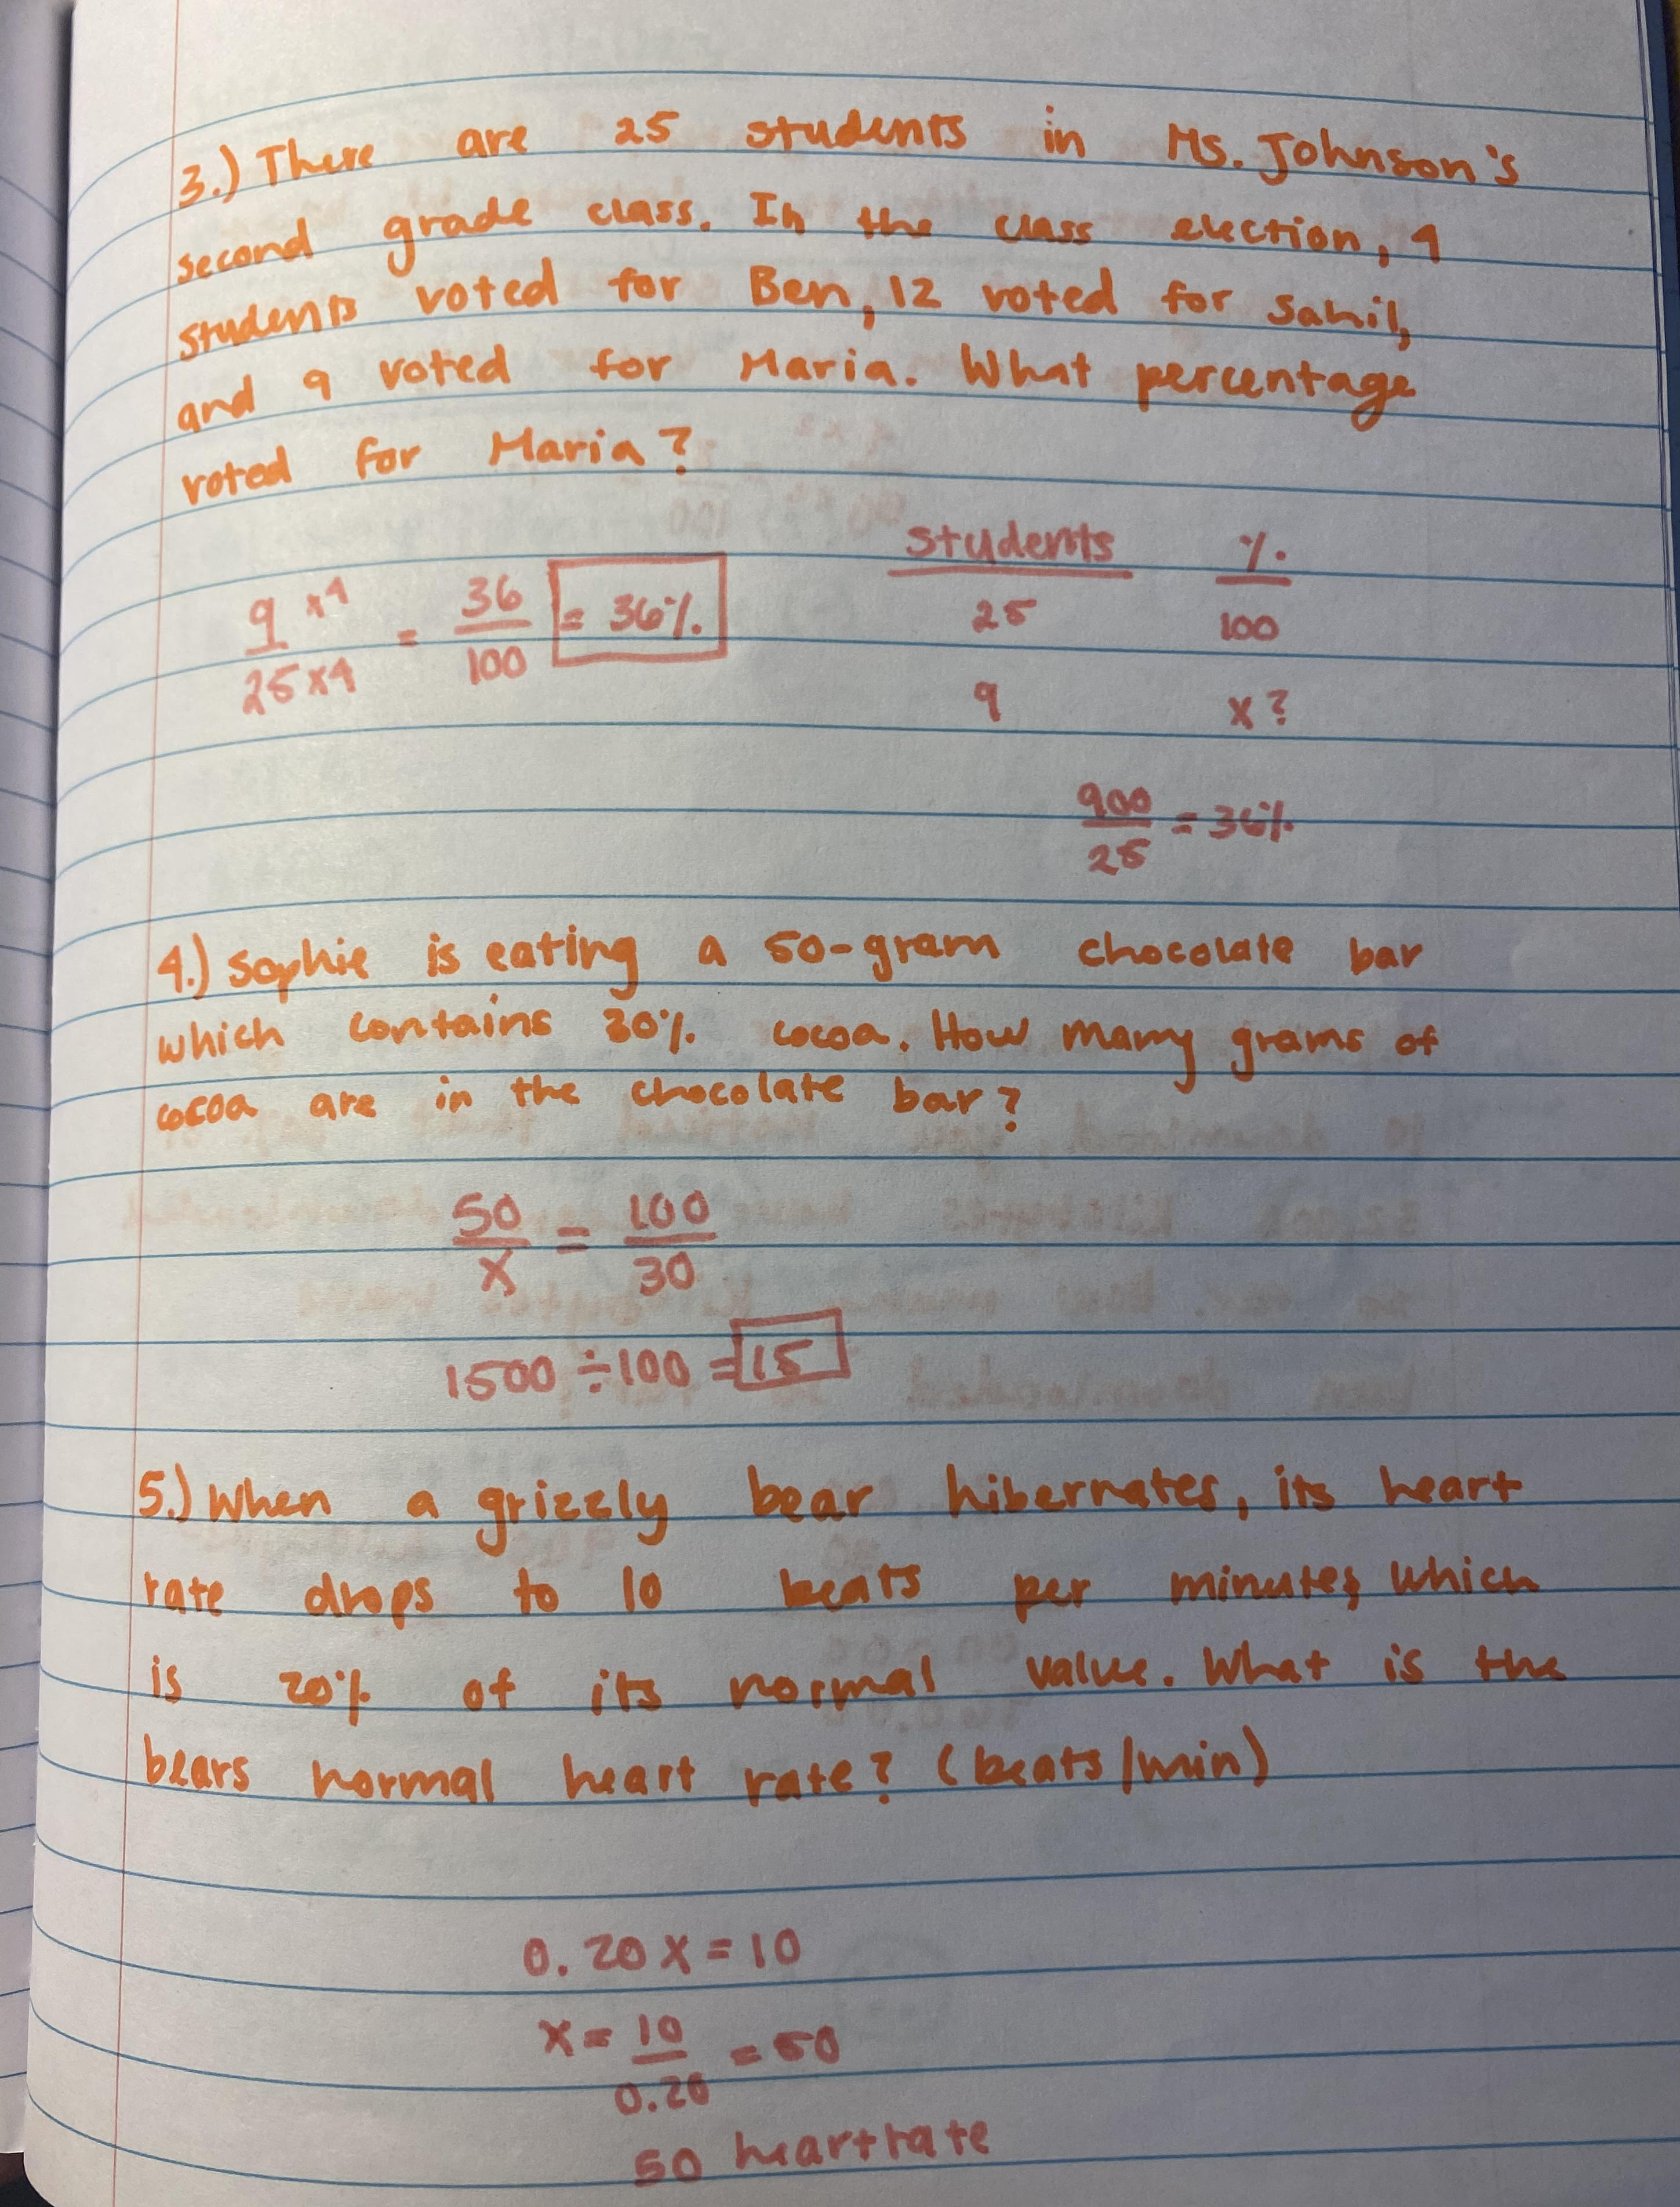 3.) There are 25 students in Ms. Johnson's
second grade class. In the class election, 4
students voted for Ben, 12 voted for Sahil,
and 9 voted for Maria. What percentage
voted for Maria?
students %
9 x4 = 36 = 36% 25 100
25 x4 100
9 x?
900 = 36%
25
4.) Sophie is eating a 50-gram chocolate bar
which contains 30% cocoa. How many grams of
cocoa are in the chocolate bar?
50 = 100
x 30
1500 ÷ 100 = 15
5.) When a grizzly bear hibernates, its heart
rate drops to 10 beats per minute, which
is 20% of its normal value. What is the
bears normal heart rate? (beats/min)
0.20x = 10
x = 10 = 50
0.20
50 heartrate